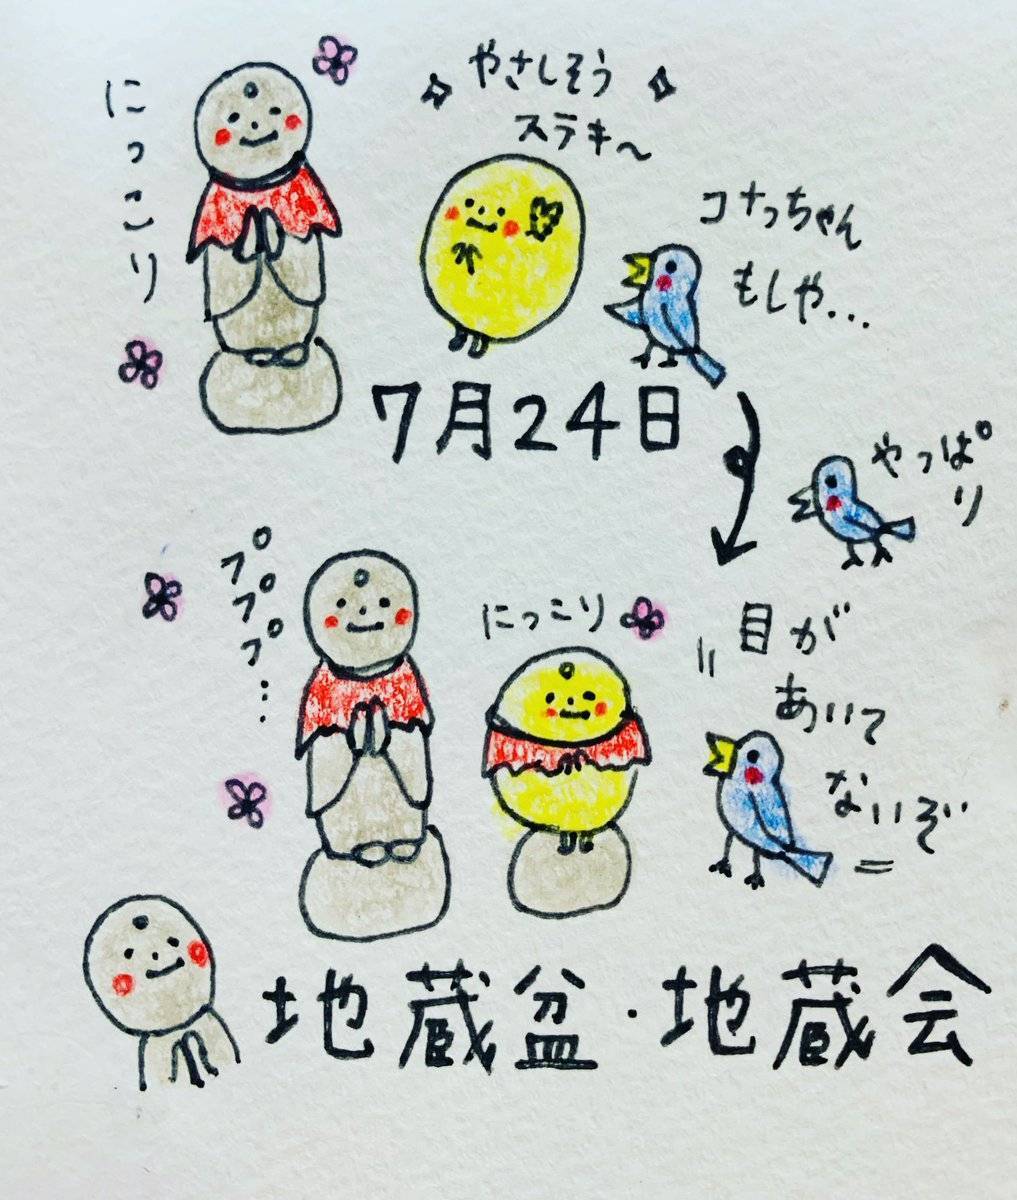 にっこり
やさしそう
ステキ〜
コナっちゃん
もしや...
7月24日
やっぱ
り
ププププ...
にっこり
目が
あいて
ないぞ
地蔵盆・地蔵会